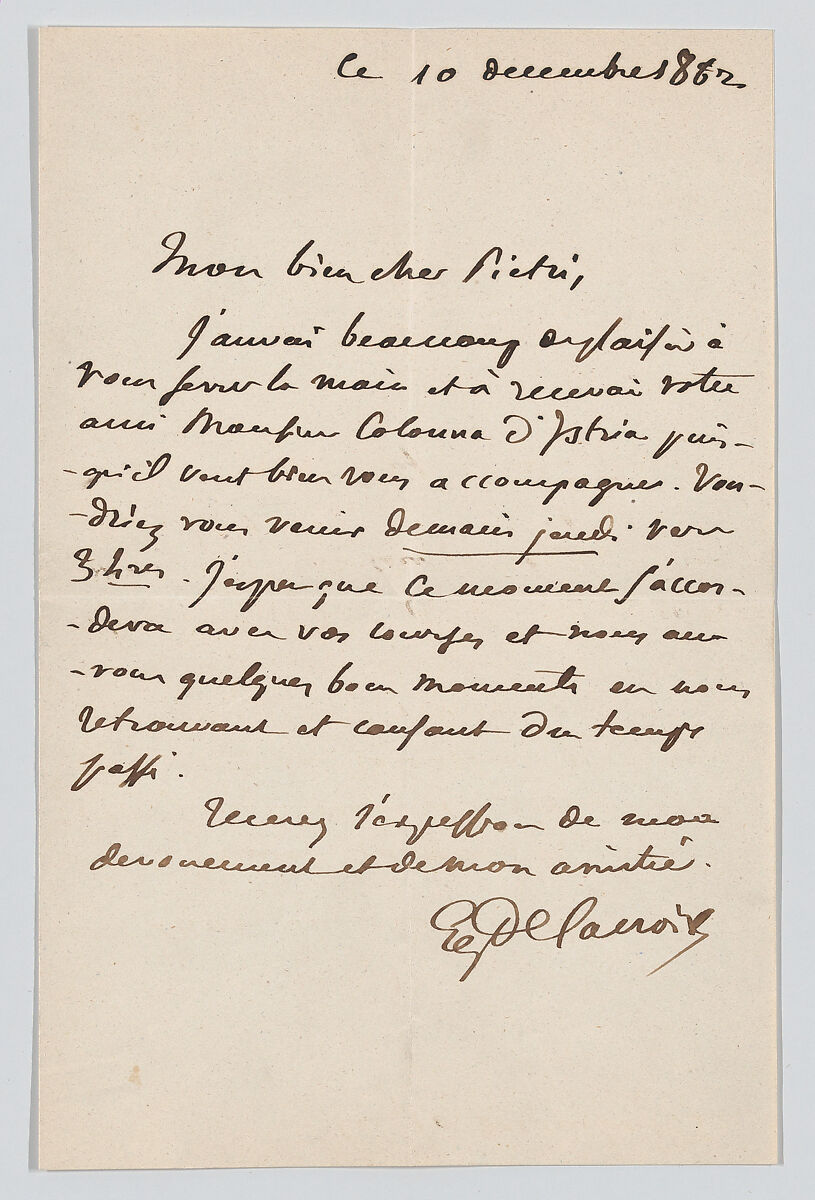 Ce 10 decembre 1862
Mon bien cher Pietri,
J'aurai beaucoup de plaisir à
vous serrer la main et à recevoir votre
ami Monsieur Colonna d'Istria puis-
-qu'il veut bien vous accompagner. Vou-
-driez vous venir demain jeudi vers
3 hres. J'espere que ce moment s'accor-
-dera avec vos courses et nous au-
-rons quelques bons moments en nous
retrouvant et causant du temps
passé.
Recevez l'expression de mon
devouement et de mon amitié.
Eug Delacroix